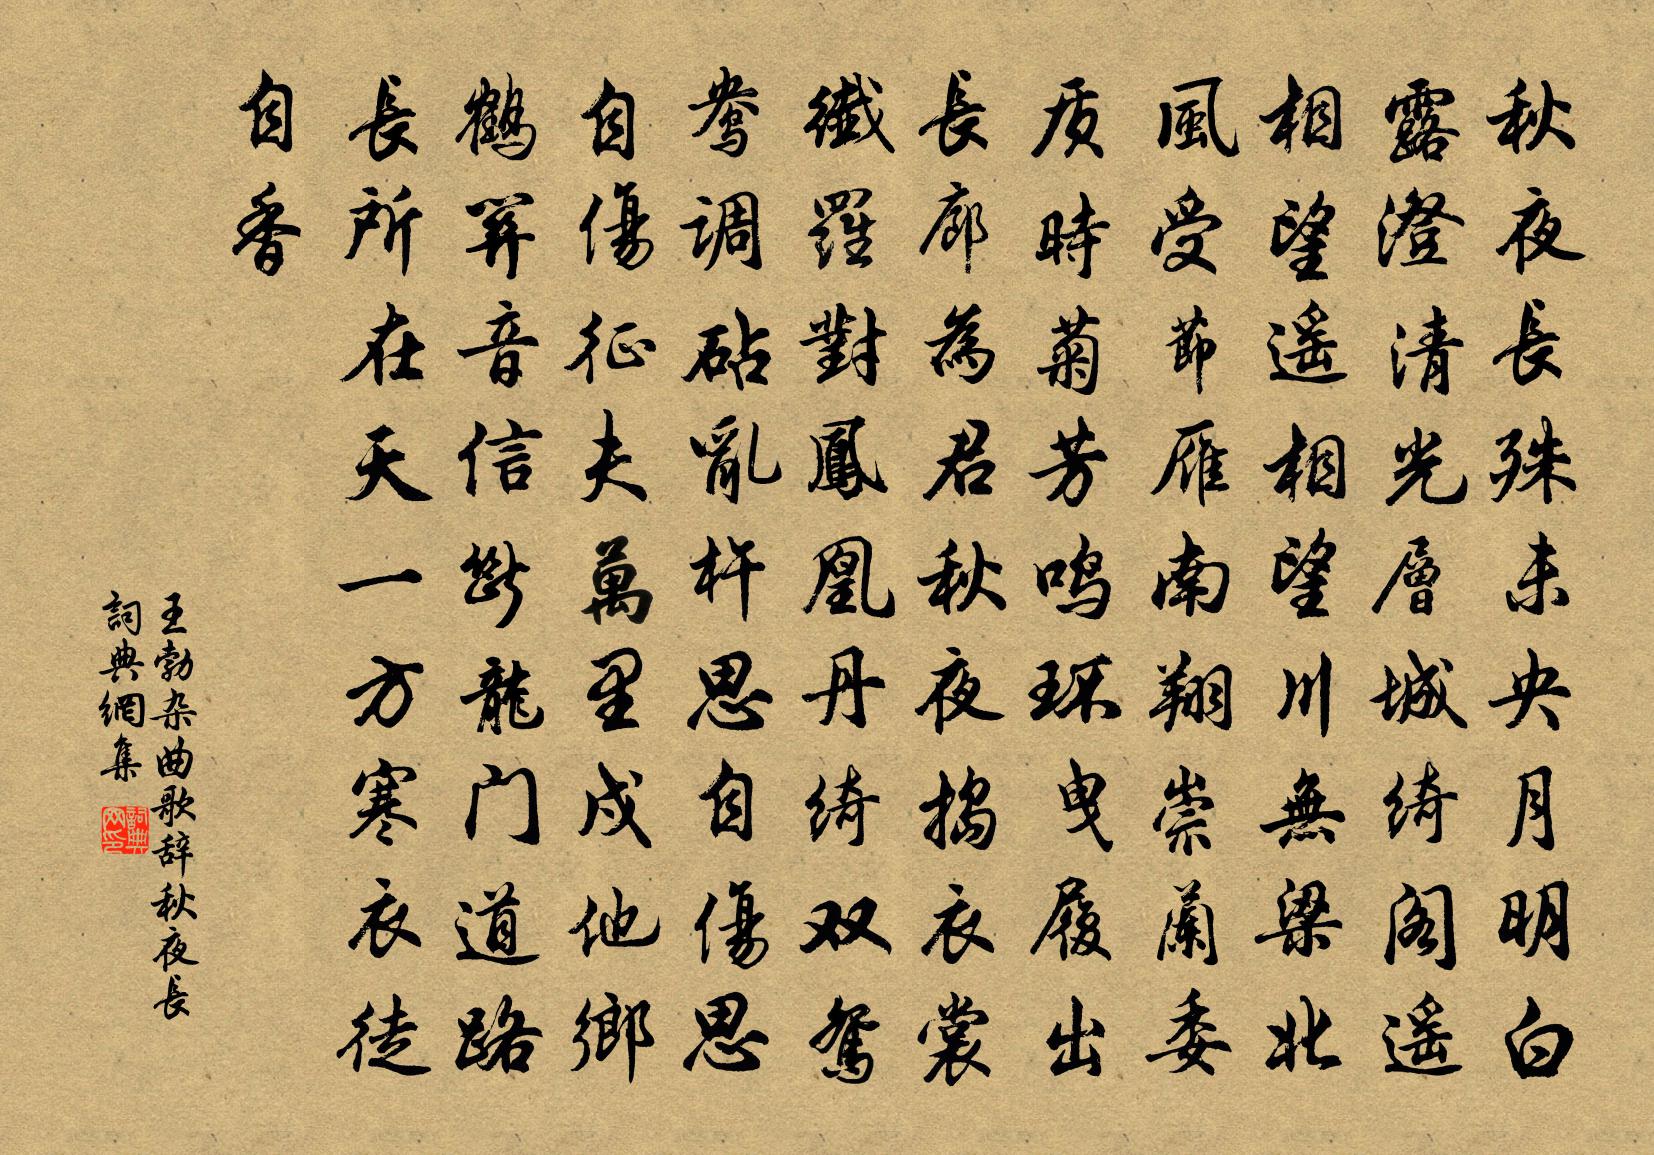 秋夜長殊未央月明白
露澄清光層城綺阁遥
相望遥相望川無梁北
風受節雁南翔崇蘭委
质時菊芳鸣环曳履出
長廊為君秋夜搗衣裳
纖羅對鳳凰丹綺双鴛
鴦調砧亂杵思自傷思
自傷征夫萬里戍他鄉
鶴關音信斷龍门道路
長所在天一方寒衣徒
自香
王勃杂曲歌辞秋夜長
詞典網集
詞典网印